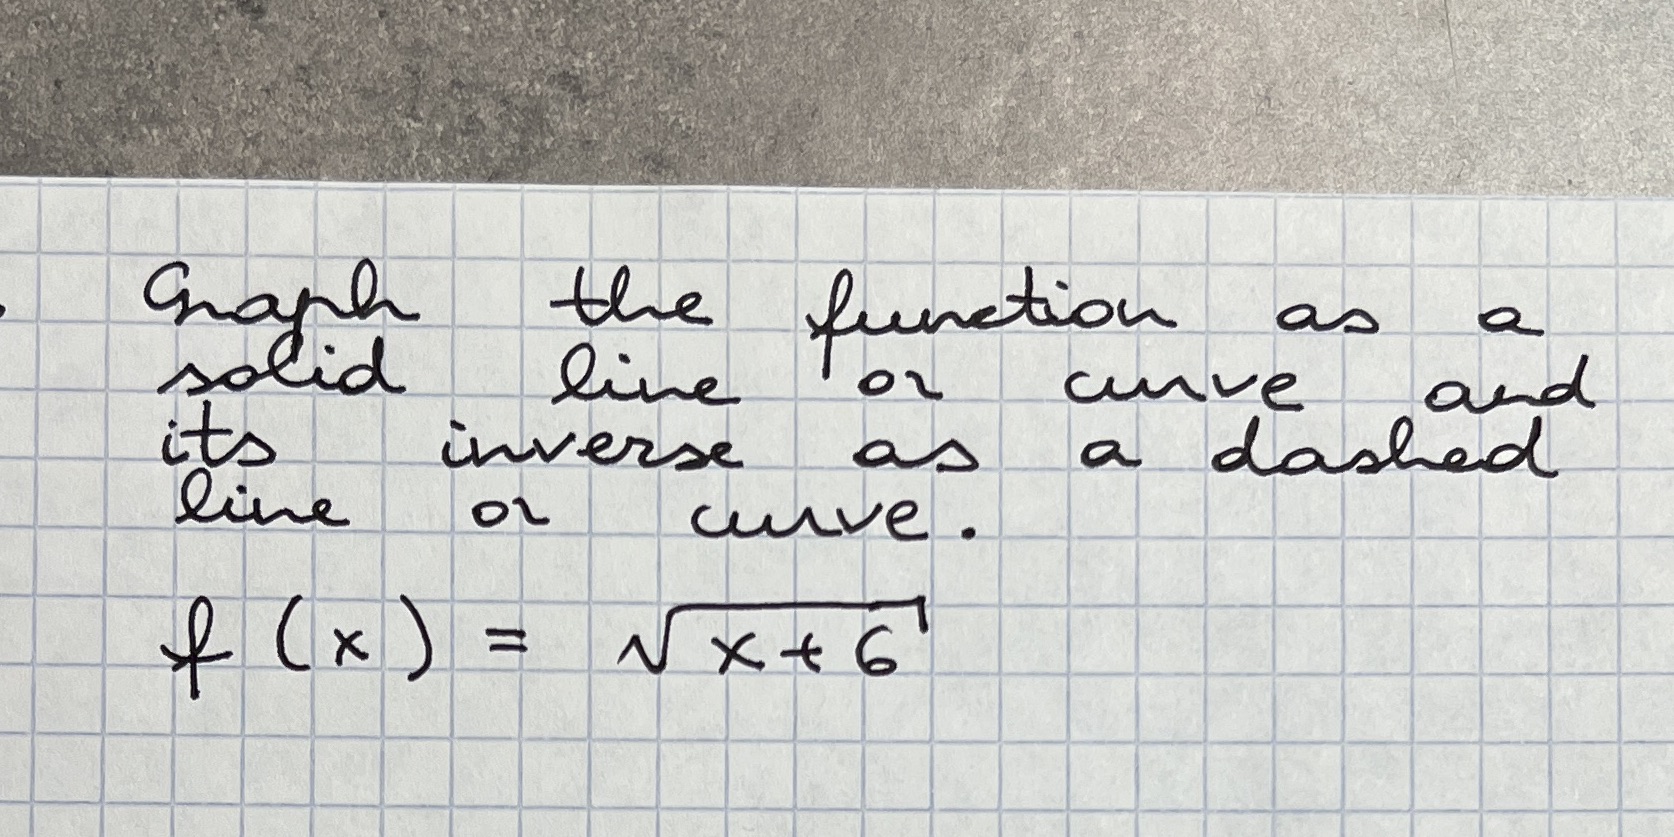 Graph the function as a
solid line or curve and
its inverse as a dashed
line or curve.
f (x) = √x+6